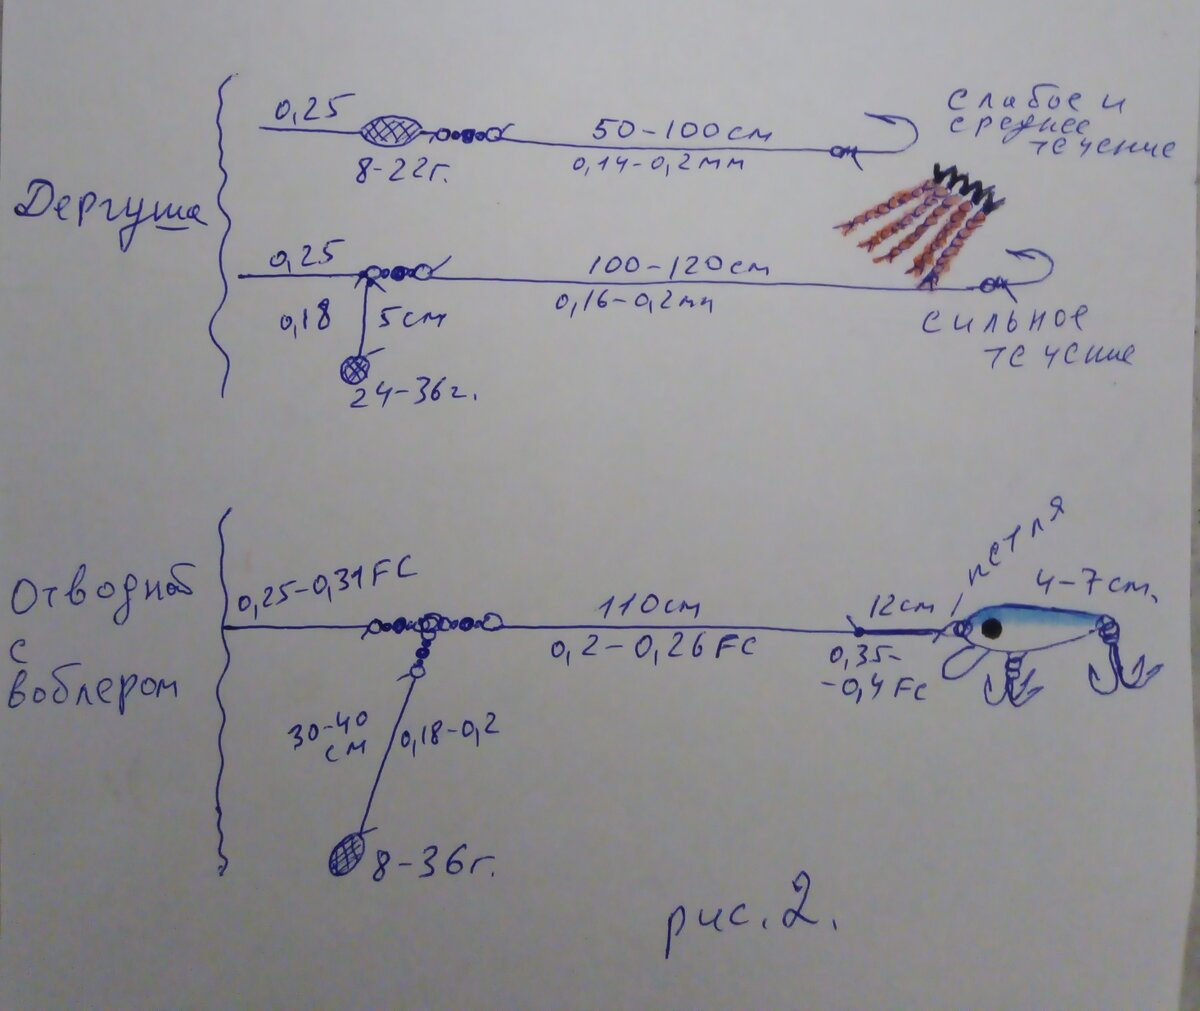 Дергуша
0,25
8-22г.
50-100см
0,14-0,2мм
слабое и
среднее
течение
0,25
0,18
5см
24-36г.
100-120см
0,16-0,2мм
сильное
течение
Отводной
с
воблером
0,25-0,31FC
30-40
см
0,18-0,2
8-36г.
110см
0,2-0,26FC
12см
0,35-
-0,4FC
петля
4-7см.
рис.2.